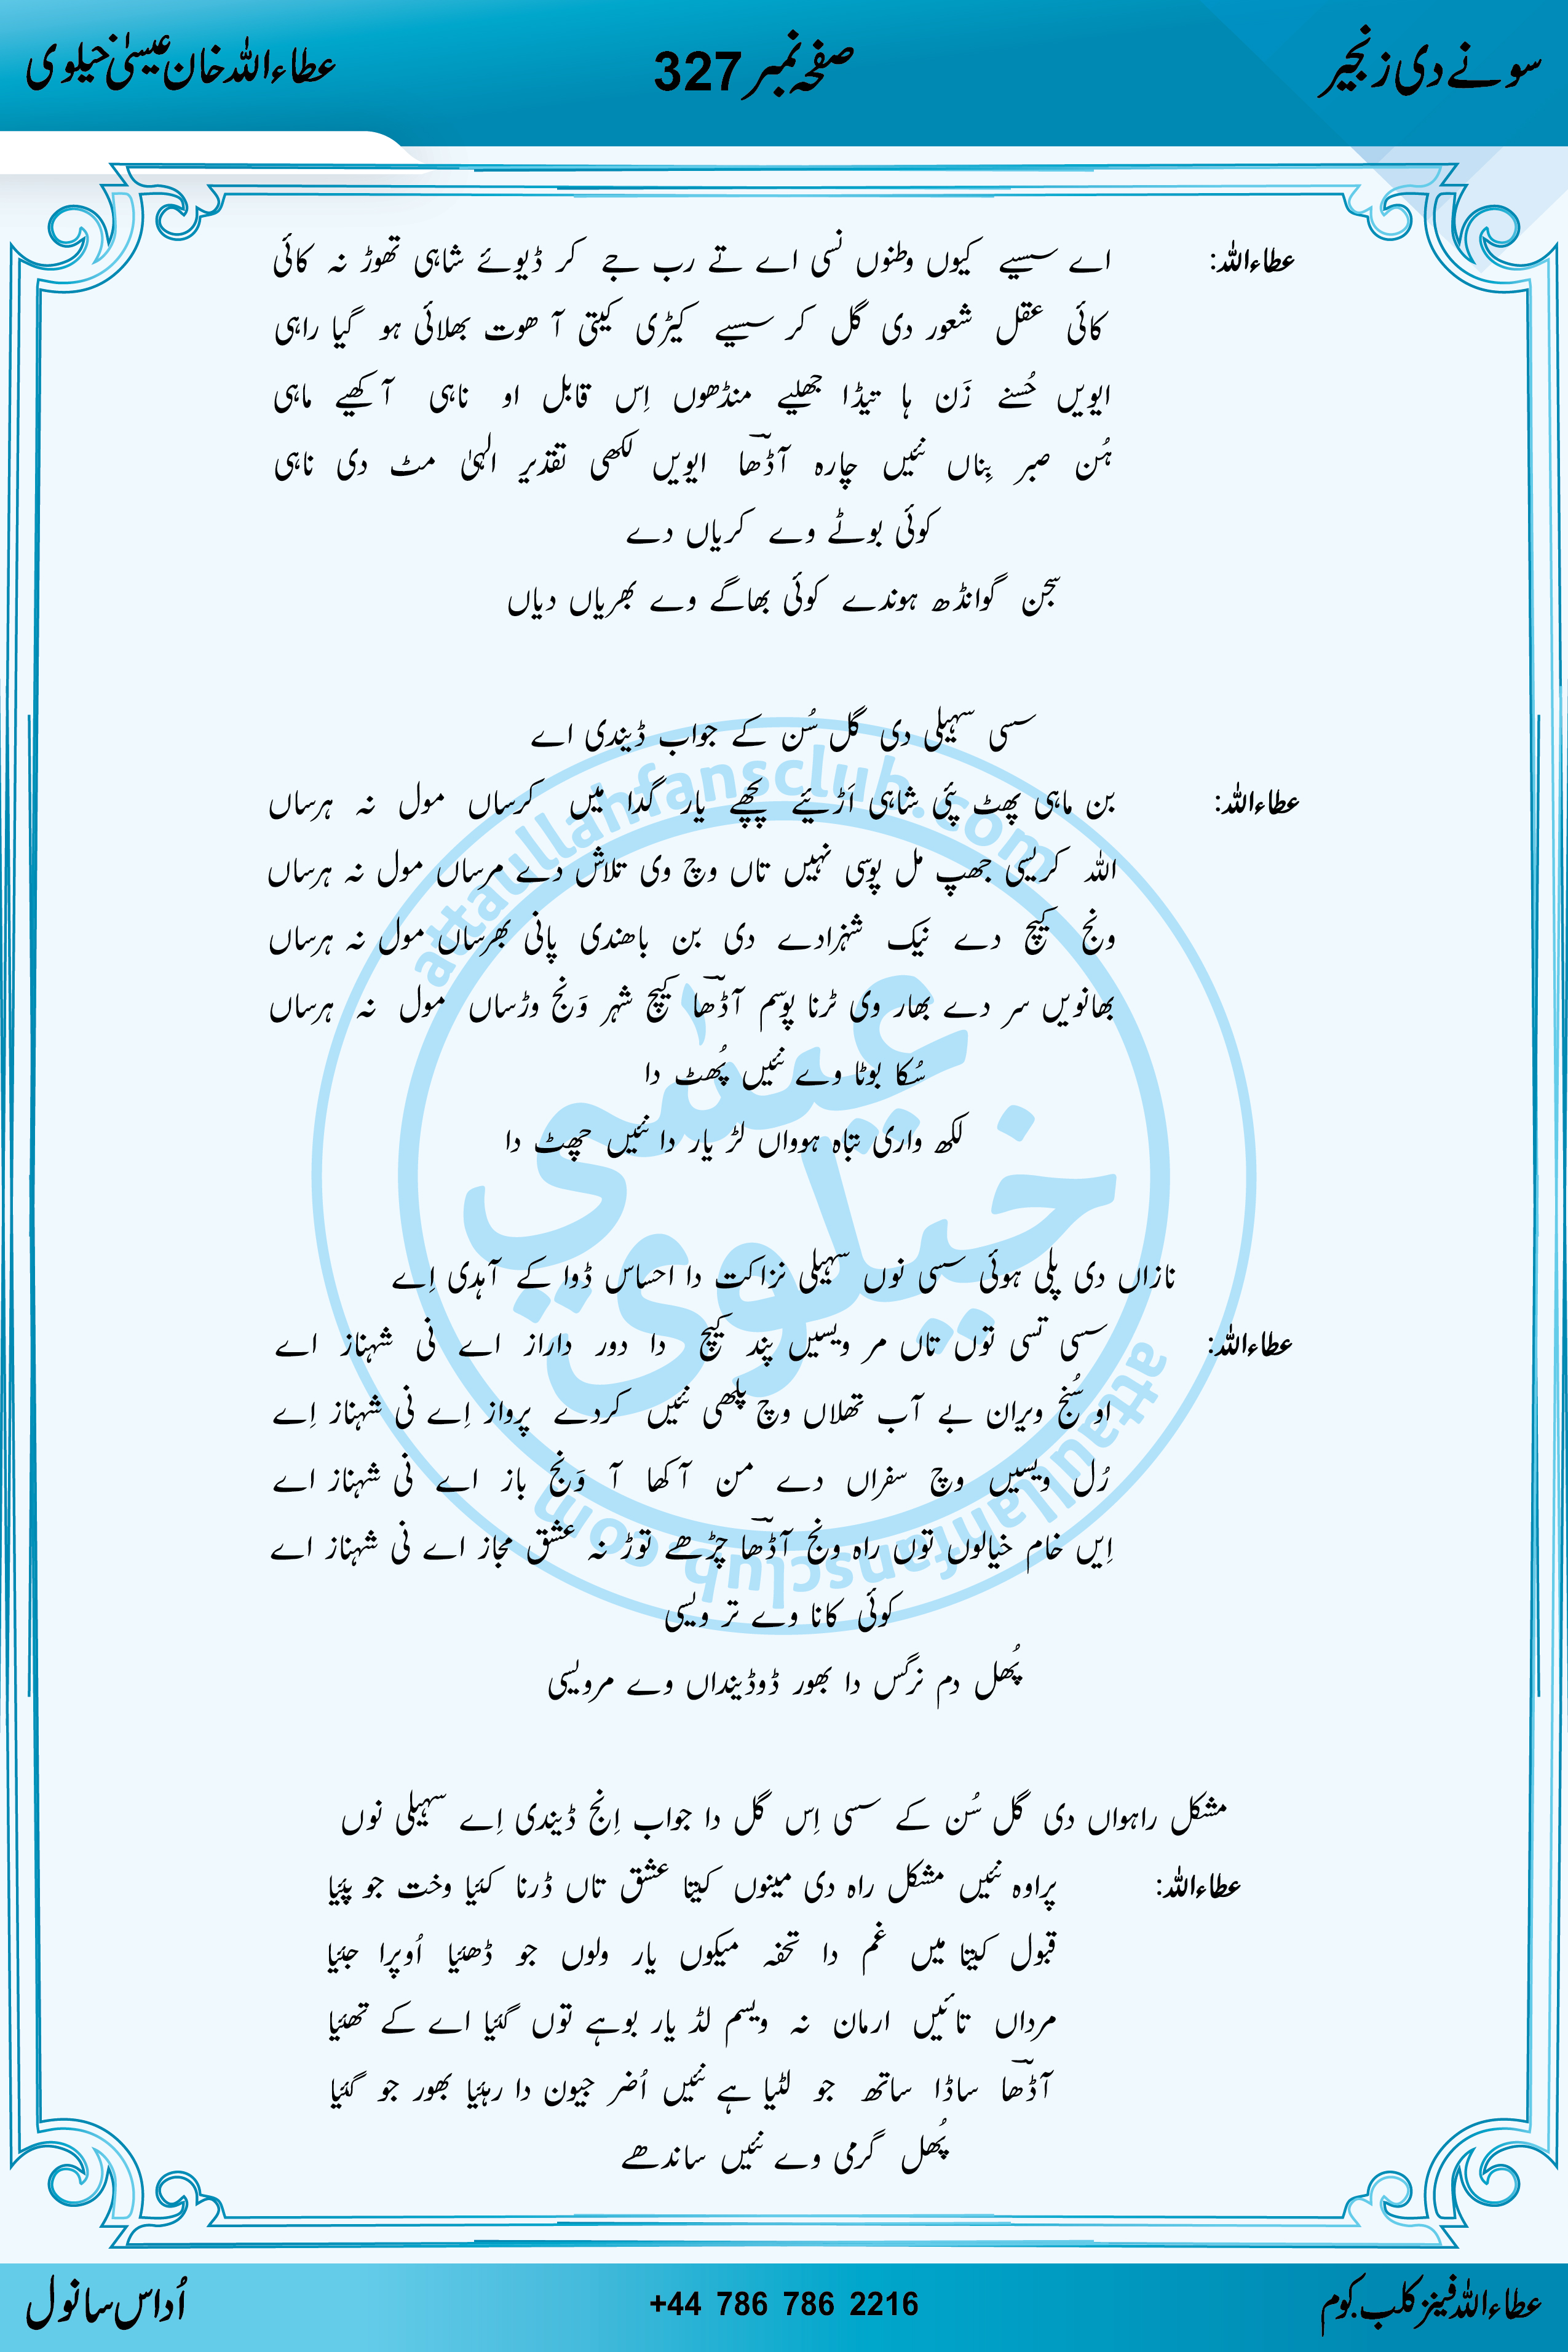 سونے دی زنجیر
صفحہ نمبر 327
عطاءاللہ خان عیسیٰ خیلوی
عطاءاللہ: اے سسیے کیوں وطنوں نسی اے تے رب جے کر ڈیوئے شاہی تھوڑ نہ کائی
کائی عقل شعور دی گل کر سسیے کیڑی کیتی آ ھوت بھلائی ہو گیا راہی
ایویں حُسنے زَن ہا تیڈا جھلیے منڈھوں اِس قابل او ناہی آکھیے ماہی
ہُن صبر بِناں نئیں چارہ آڈھاؔ ایویں لکھی تقدیر الہیٰ مٹ دی ناہی
کوئی بوٹے وے کریاں دے
سجن گوانڈھ ہوندے کوئی بھاگے وے بھریاں دیاں
سسی سہیلی دی گل سُن کے جواب ڈیندی اے
عطاءاللہ: بن ماہی پھٹ پئی شاہی اَڑئیے پچھے یار گدا میں کرساں مول نہ ہرساں
اللہ کریسی جھپ مل پوسی نہیں تاں وچ وی تلاش دے مرساں مول نہ ہرساں
ونج کیچ دے نیک شہزادے دی بن باھندی پانی بھرساں مول نہ ہرساں
بھانویں سر دے بھار وی ٹرنا پوسم آڈھاؔ کیچ شہر وَنج وڑساں مول نہ ہرساں
سُکا بوٹا وے نئیں پُھٹ دا
لکھ واری تباہ ہوواں لڑ یار دا نئیں چھٹ دا
نازاں دی پلی ہوئی سسی نوں سہیلی نزاکت دا احساس ڈوا کے آہدی اِے
عطاءاللہ: سسی تسی توں تاں مر ویسیں پند کیچ دا دور داراز اے نی شہناز اے
او سُنج ویران بے آب تھلاں وچ پلھی نئیں کردے پرواز اِے نی شہناز اِے
رُل ویسیں وچ سفراں دے من آکھا آ وَنج باز اے نی شہناز اے
اِیں خام خیالوں توں راہ ونج آڈھاؔ چڑھے توڑ نہ عشق مجاز اے نی شہناز اے
کوئی کانا وے تر ویسی
پُھل دم نرگس دا بھور ڈوڈینداں وے مرویسی
مشکل راہواں دی گل سُن کے سسی اِس گل دا جواب اِنج ڈیندی اِے سہیلی نوں
عطاءاللہ: پراوہ نئیں مشکل راہ دی مینوں کیتا عشق تاں ڈرنا کئیا وخت جو پئیا
قبول کیتا میں غم دا تحفہ میکوں یار ولوں جو ڈھئیا اُوپرا جئیا
مرداں تائیں ارمان نہ ویسم لڈ یار بوہے توں گئیا اے کے تھئیا
آڈھاؔ ساڈا ساتھ جو لٹیا ہے نئیں اُضر جیون دا رہئیا بھور جو گئیا
پُھل گرمی وے نئیں ساندھے
attaullahfansclub.com
عیسٰی
خیلوی
attaullahfansclub.com
عطاءاللہ فینز کلب.کوم
+44 786 786 2216
اُداس سانول